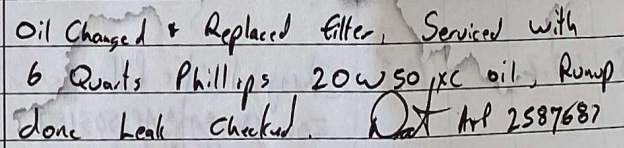 Oil Changed & Replaced filter, Serviced with
6 Quarts Phillips 20W50 XC oil, Runup
done Leak Checked. A&P 2587687